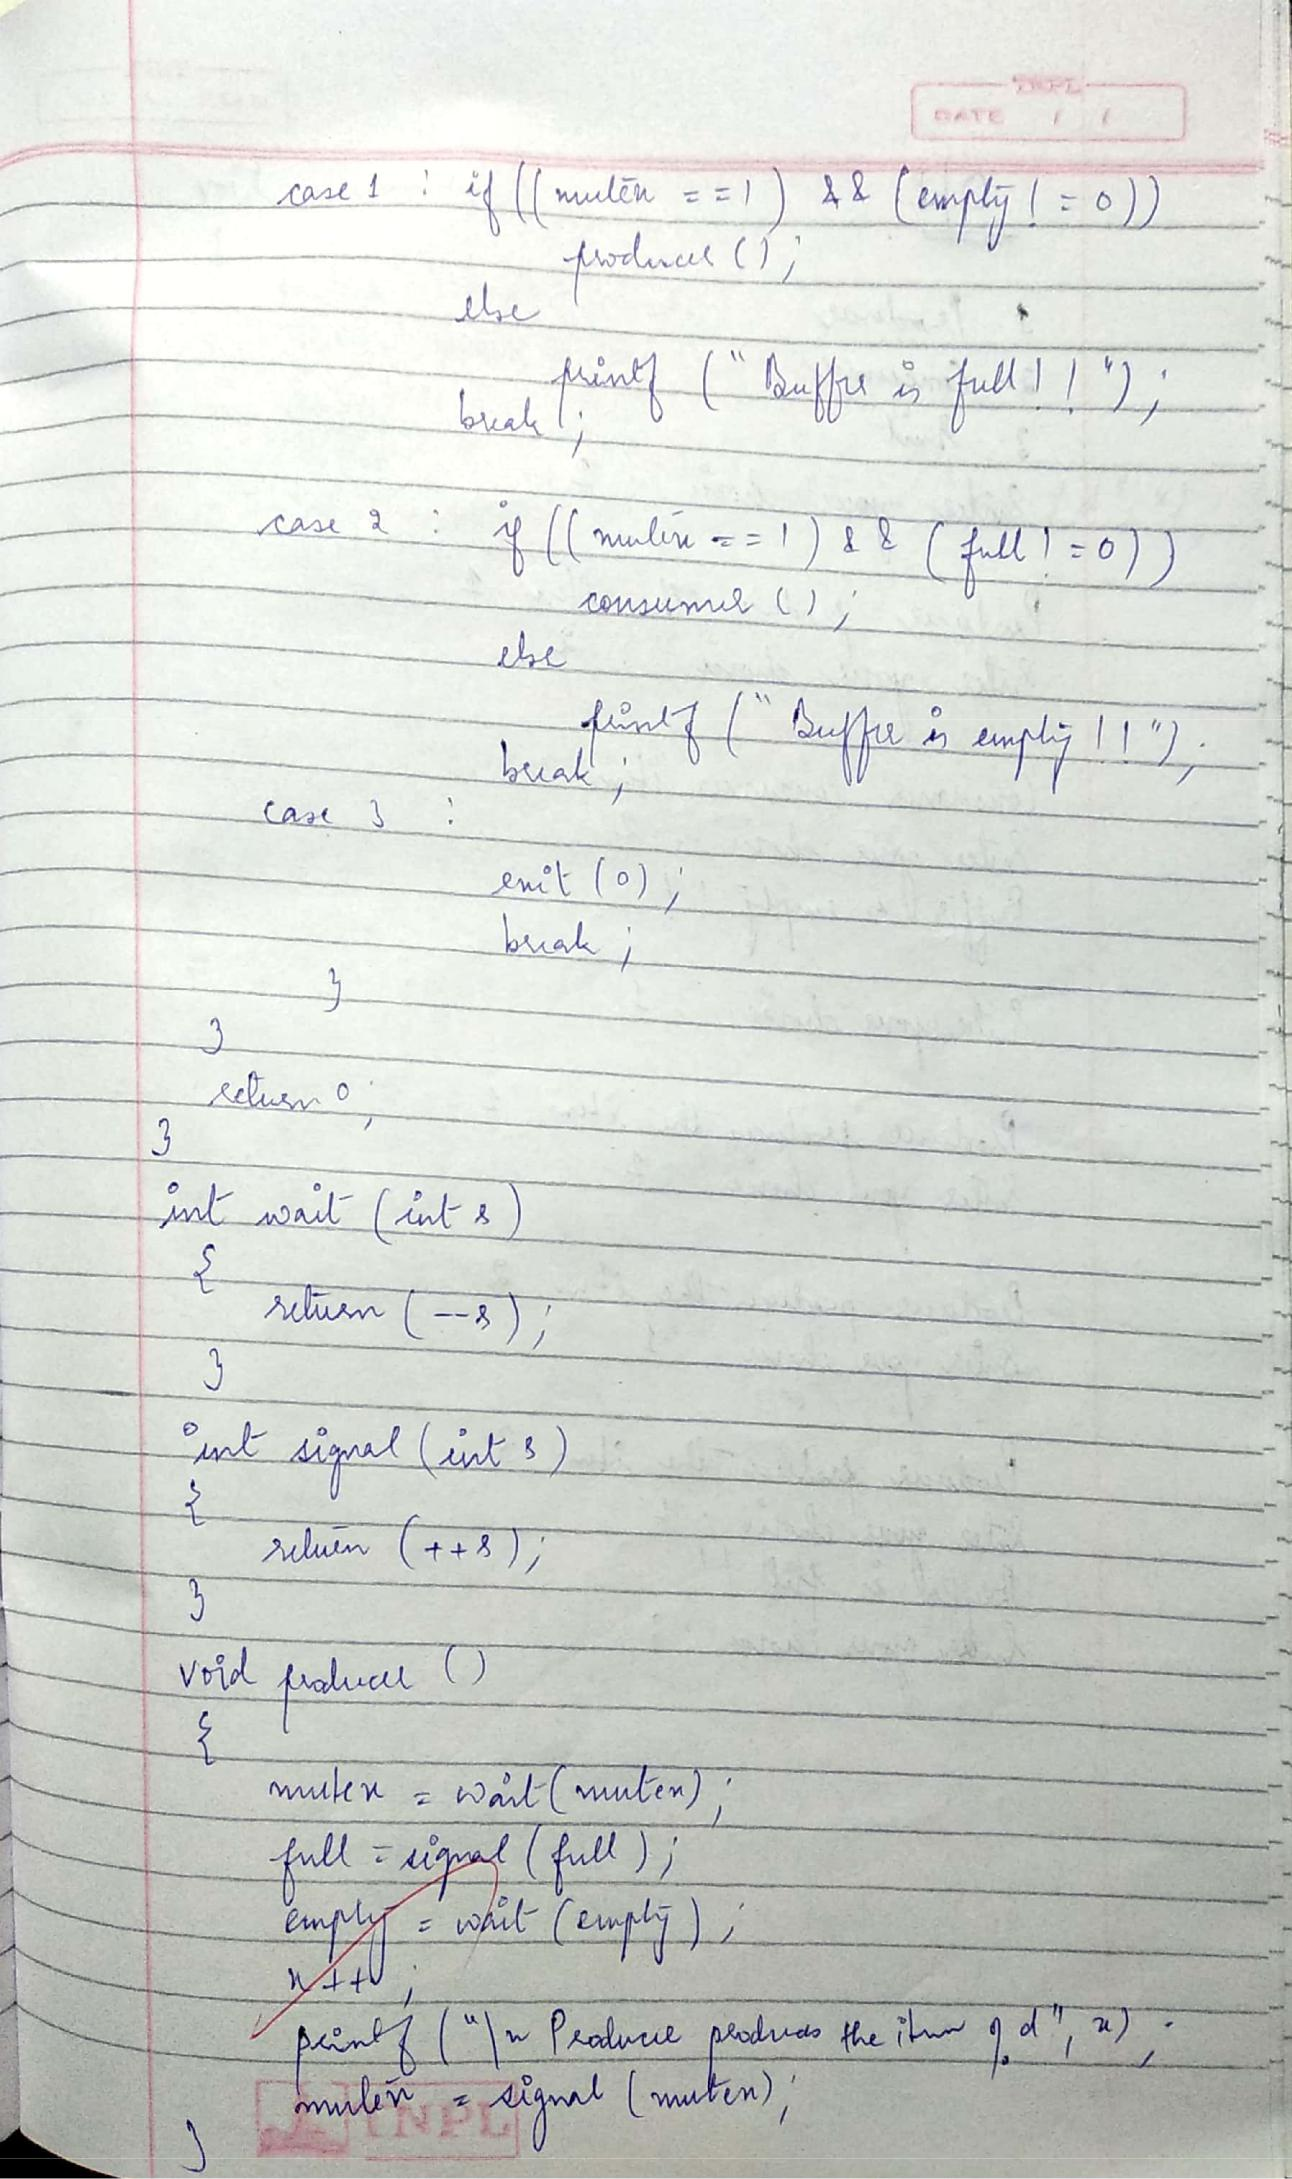 INPL
DATE / /
case 1 : if ((mutex == 1) && (empty != 0))
producer ();
else
printf ("Buffer is full!!");
break ;
case 2 : if ((mutex == 1) && (full != 0))
consumer ();
else
printf ("Buffer is empty!!");
break ;
case 3 :
exit (0) ;
break ;
}
}
return 0;
}
int wait (int s)
{
return (--s) ;
}
int signal (int s)
{
return (++s) ;
}
void producer ()
{
mutex = wait (mutex) ;
full = signal (full) ;
empty = wait (empty) ;
x++ ;
printf ("\n Producer produces the item %d", x) ;
mutex = signal (mutex) ;
}
INPL